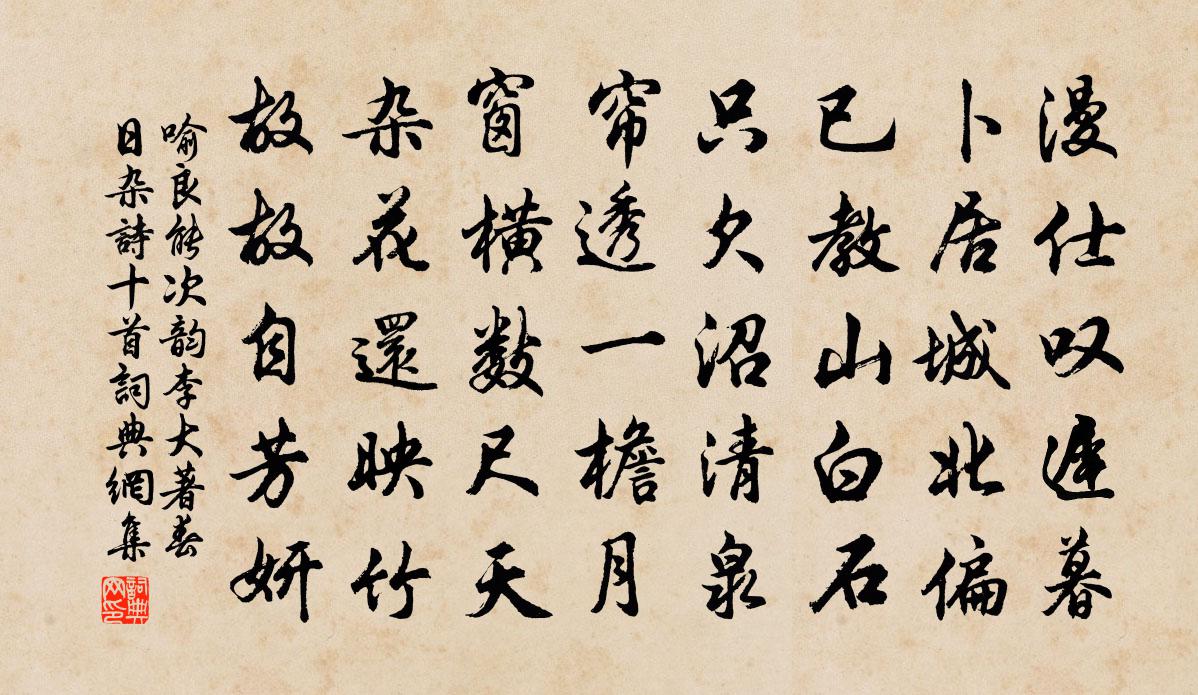 漫仕叹遲暮
卜居城北偏
已教山白石
只欠沼清泉
帘透一檐月
窗橫數尺天
杂花還映竹
故故自芳妍
喻良能次韵李大著春
日杂詩十首詞典網集
詞典网印